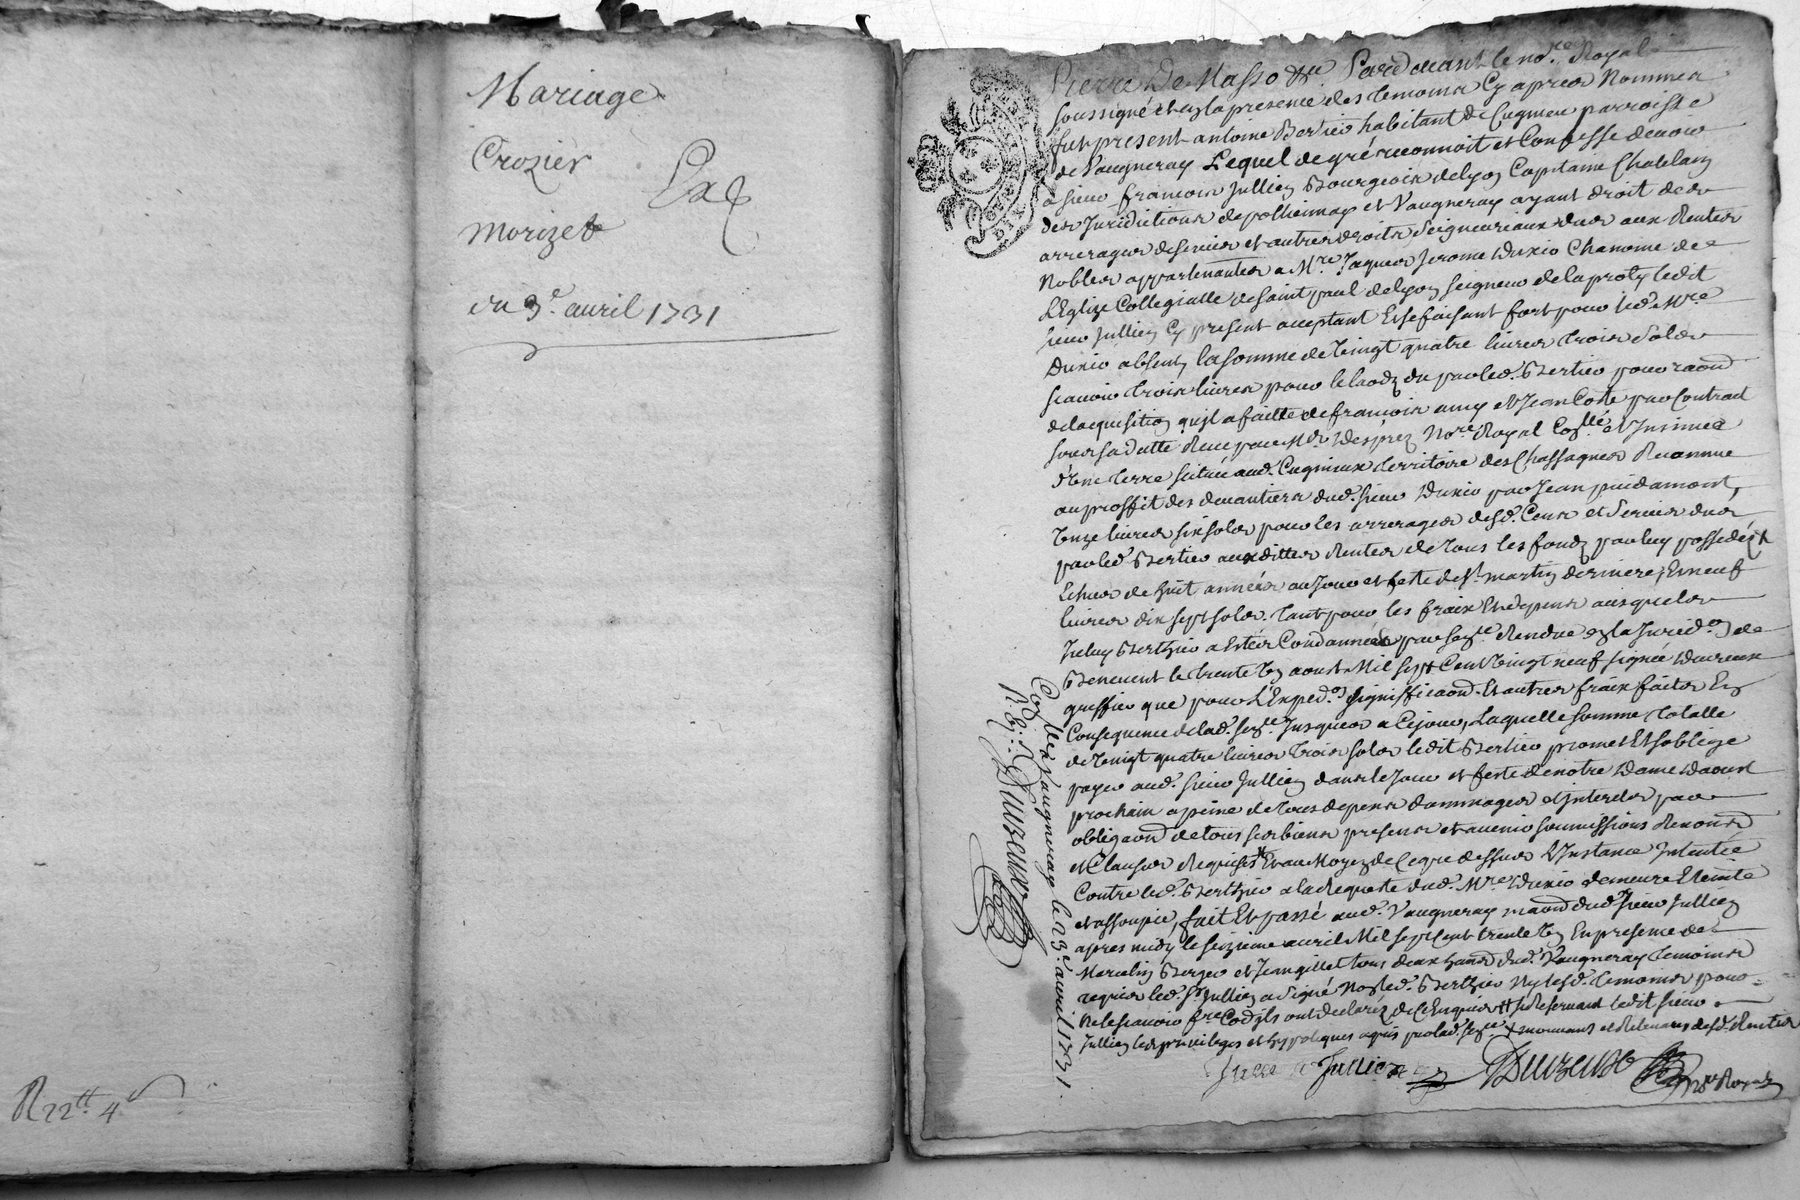 Mariage
Crozier
Morizet
du 3e. auril 1731
R 22tt 4s
Pardeuant le nore. Royal
soussigné et en la presence des temoins Cy apres Nommes
fut present antoine Bertier habitant de Cugnieu parroisse
de Vaugneray Lequel de gré reconnoit et Confesse deuoir
a sieur francois Jullien Bourgeois de lyon Capitaine Chatelain
des Juridictions de pollieinnay et Vaugneray ayant droit des
arrerages de seruis et autres droits Seigneuriaux dus aux Rentes
Nobles appartenantes a Mre. Jaques Jerome Chanoine de
L'Eglize Collegialle de saint paul de lyon seigneur de la ledit
sieur Jullien Cy present acceptant Et se faisant fort pour led. Mre
absent, la somme de Vingt quatre liures trois Sols
scauoir trois liures pour le laodz du par led. Bertier pour raond
de lacquisition qu'il a faitte de francois et Jean Coste par Contrat
sous sa datte Receu par Me. Nore. Royal et Insinué
d'Une terre scituée aud. Cugnieux territoire des Chassagnes Reconnue
au proffit des deuantiers dud. sieur par Jean
Onze liures six sols pour les arrerages desd. Cens et Seruis dus
par led. Bertier auxdittes Rentes de tous les fondz par luy possedés
Echues de huit années au Jour et feste de St. martin derniere, Et neuf
liures dix sept sols tant pour les fraix Et depens ausquels
Iceluy Berthier a Ester Condannées par sence. Rendue en la Jurid.on de
Beneuent le trente Un aoust Mil sept Cent Vingt neuf signée
greffier que pour L'Exped.on signiffica.ond Et autres fraix faits En
Consequence de lad. sence. Jusques a Cejour, Laquelle somme totalle
de Vingt quatre liures trois sols ledit Bertier promet Et soblige
payer aud. sieur Jullien dans le Jour et feste de notre Dame Daoust
prochain a peine de tous depens dommages et Interets par
obligaond de tous ses biens presens et auenir soumissions Renond
et Clauses Requises Et au Moyen de Ceque dessus L'Instance Intentée
Contre led. Berthier a la Requeste dud. Mre. demeure Eteinte
et assoupie, fait Et passé aud. Vaugneray maond dud. sieur Jullien
apres midy le seizieme auril Mil sept Cent trente Un En presence de
Marcelin Berger et Jean gillet tous deux dud. Vaugneray temoins
requis led. Sr Jullien a Signé Non led. Berthier Ny lesd. temoins pour
Ne le scauoir fre. Cod ils ont declarez de Ce Enquis Se Reseruant ledit sieur
Jullien les priuileges et hypoteques aquis par lad. sence mouuans et Releuans desd. Rentes
Jullien
nore Royal
Coll. à Vaugneray le 23e auril 1731